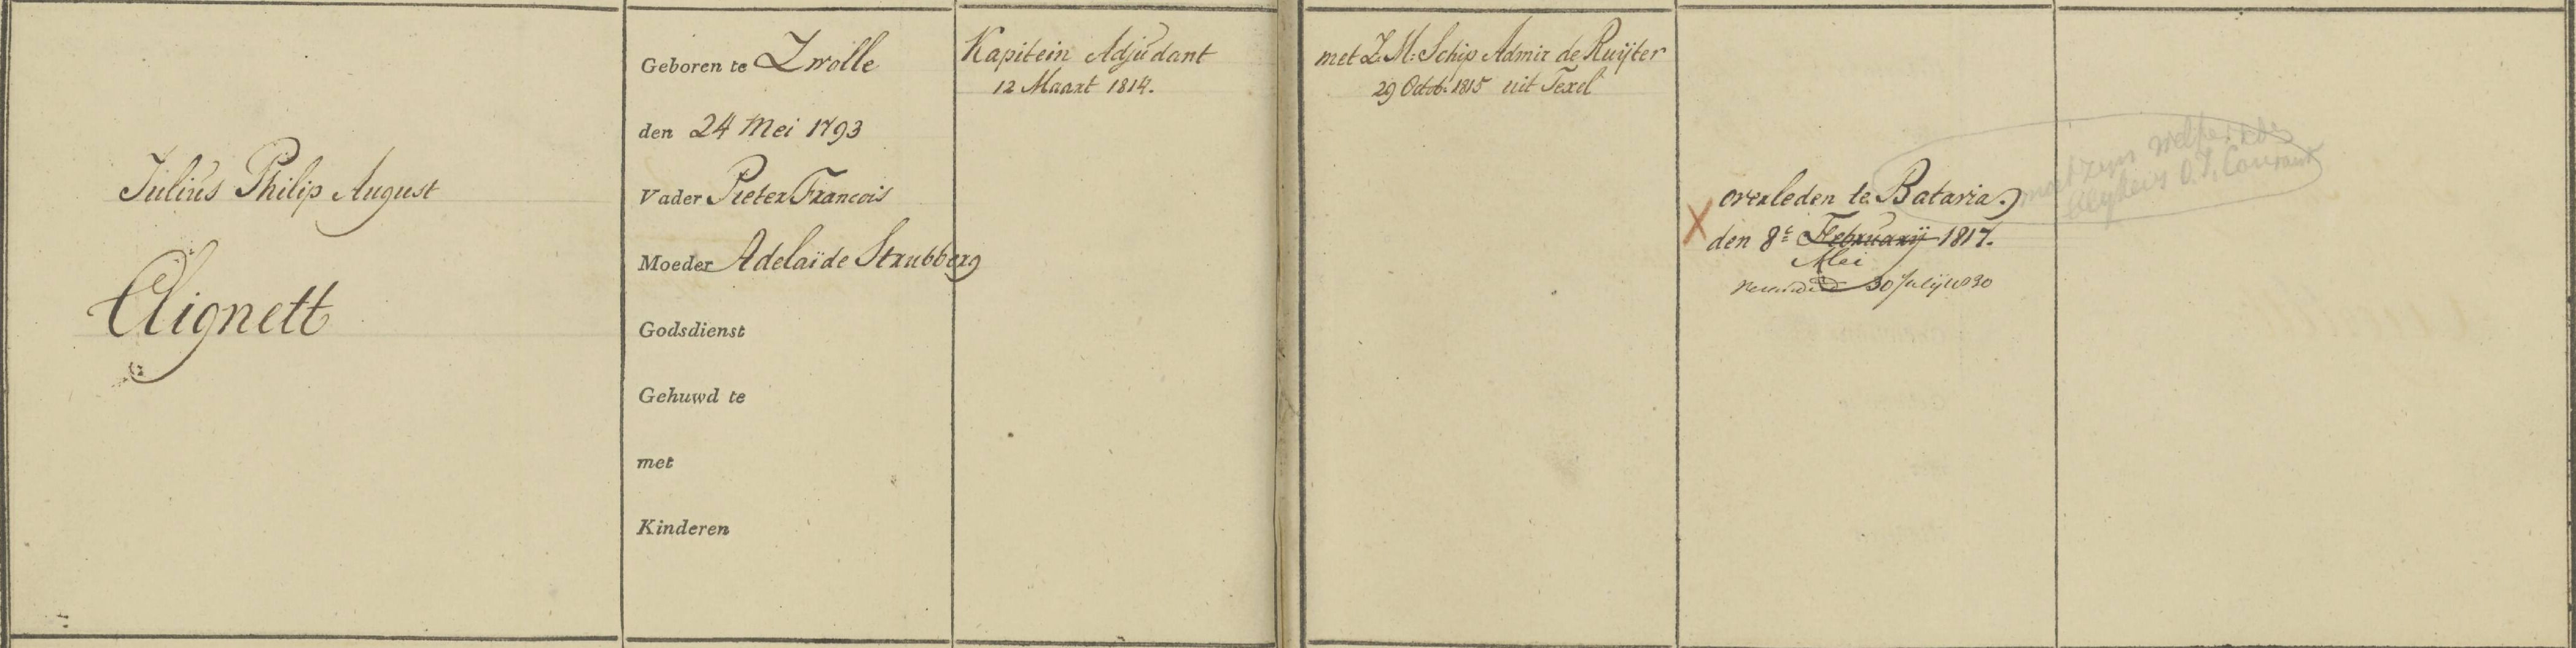 Julius Philip August
Clignett
Geboren te Zwolle
den 24 Mei 1793
Vader Pieter Francois
Moeder Adelaïde Strubberg
Godsdienst
Gehuwd te
met
Kinderen
Kapitein Adjudant
12 Maart 1814.
met Z. M. Schip Admir de Ruijter
29 Octob. 1815 uit Texel
X overleden te Batavia.
den 8e Februarij 1817.
Mei
30 Julij 1830
moet zijn
O.I. Courant